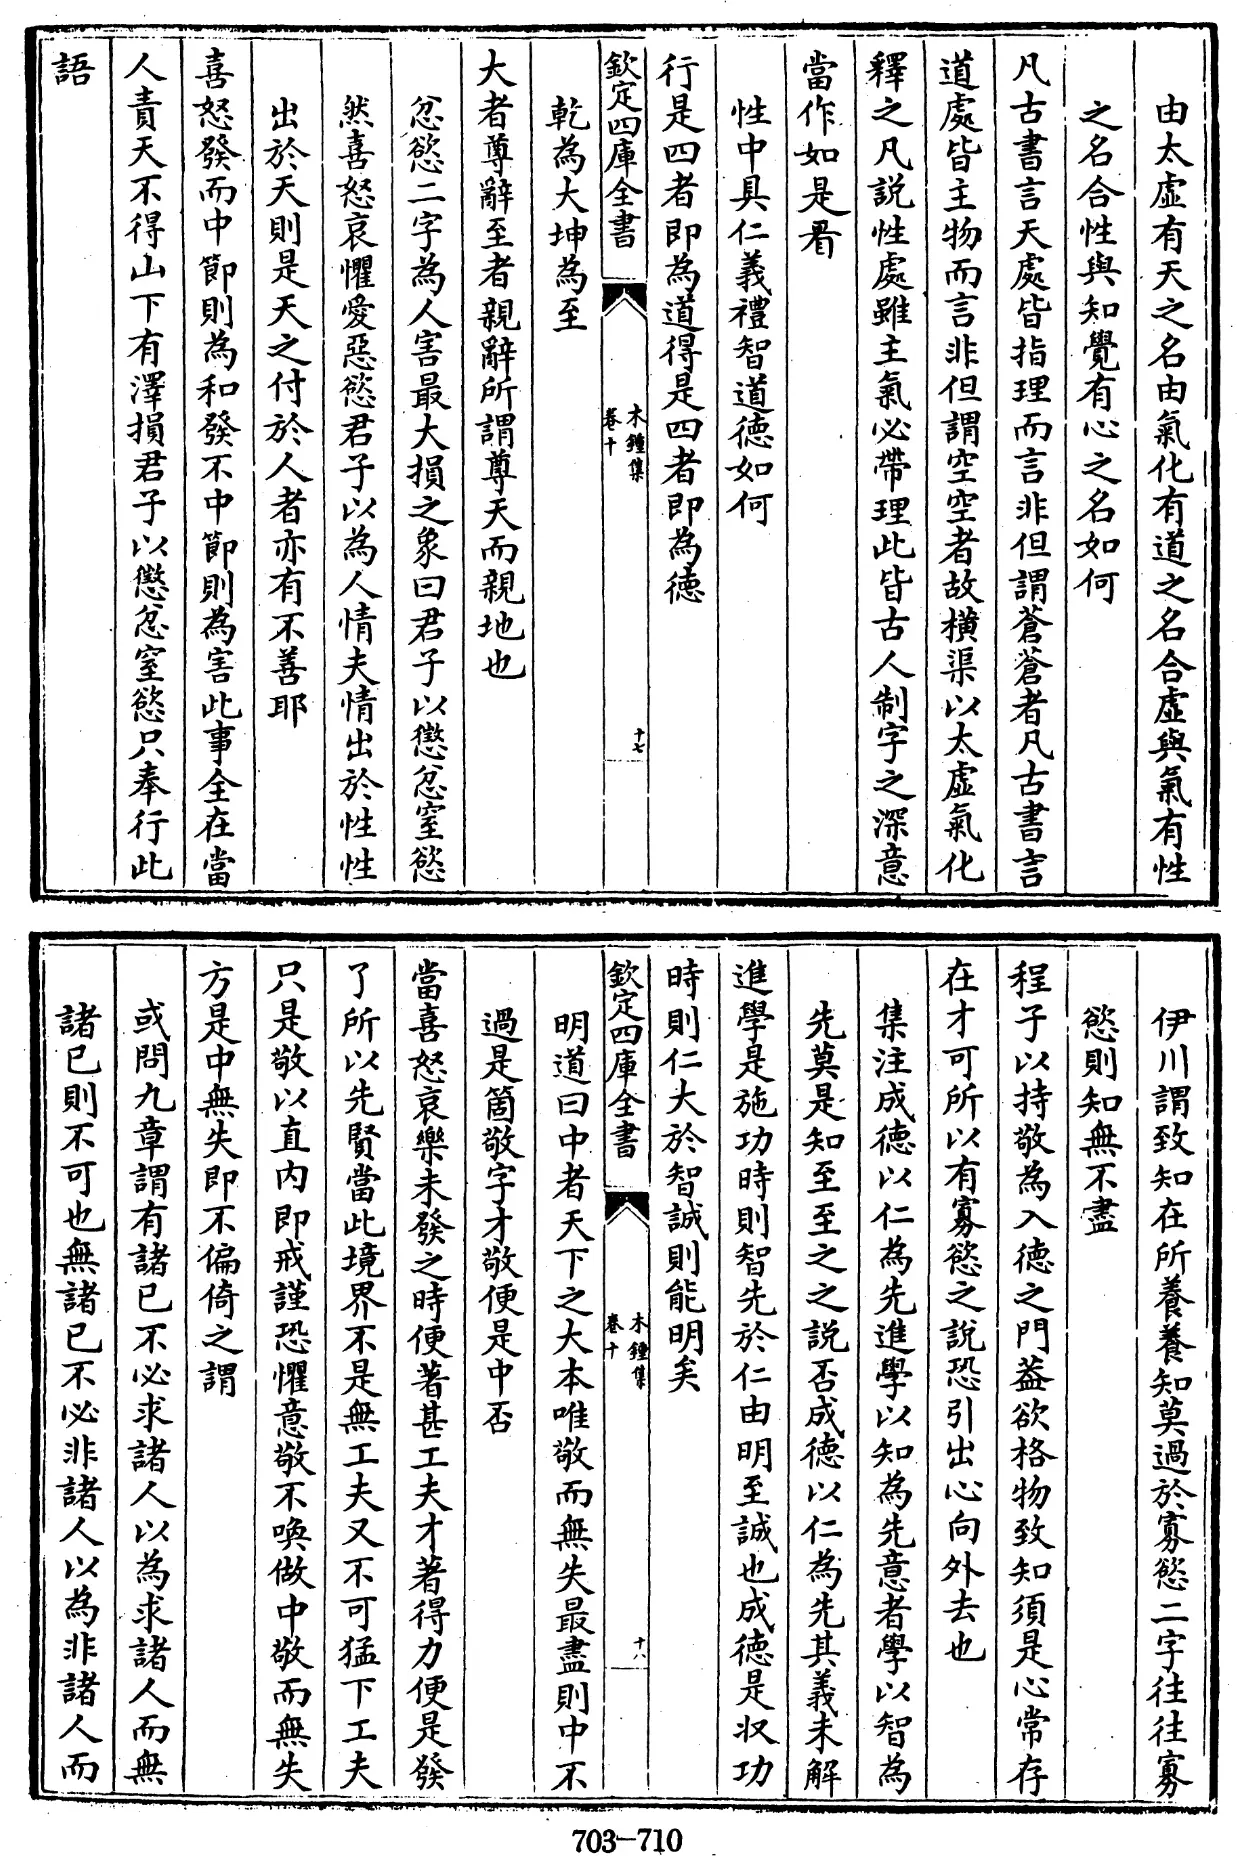 由太虛有天之名由氣化有道之名合虛與氣有性
之名合性與知覺有心之名如何
凡古書言天處皆指理而言非但謂蒼蒼者凡古書言
道處皆主物而言非但謂空空者故橫渠以太虛氣化
釋之凡說性處雖主氣必帶理此皆古人制字之深意
當作如是看
性中具仁義禮智道德如何
行是四者即為道得是四者即為德
欽定四庫全書
木鍾集
卷十
十七
乾為大坤為至
大者尊辭至者親辭所謂尊天而親地也
忿慾二字為人害最大損之象曰君子以懲忿窒慾
然喜怒哀懼愛惡慾君子以為人情夫情出於性性
出於天則是天之付於人者亦有不善耶
喜怒發而中節則為和發不中節則為害此事全在當
人責天不得山下有澤損君子以懲忿窒慾只奉行此
語
伊川謂致知在所養養知莫過於寡慾二字往往寡
慾則知無不盡
程子以持敬為入德之門葢欲格物致知須是心常存
在才可所以有寡慾之說恐引出心向外去也
集注成德以仁為先進學以知為先意者學以智為
先莫是知至至之之說否成德以仁為先其義未解
進學是施功時則智先於仁由明至誠也成德是収功
時則仁大於智誠則能明矣
欽定四庫全書
木鍾集
卷十
十八
明道曰中者天下之大本唯敬而無失最盡則中不
過是箇敬字才敬便是中否
當喜怒哀樂未發之時便著甚工夫才著得力便是發
了所以先賢當此境界不是無工夫又不可猛下工夫
只是敬以直内即戒謹恐懼意敬不喚做中敬而無失
方是中無失即不偏倚之謂
或問九章謂有諸己不必求諸人以為求諸人而無
諸己則不可也無諸己不必非諸人以為非諸人而
703-710